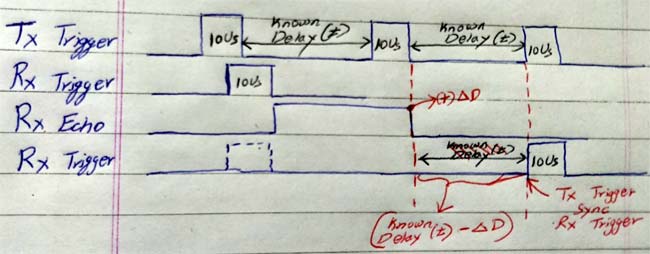 Tx Trigger 10Us Known Delay(t) 10Us Known Delay(t) 10Us
Rx Trigger 10Us
Rx Echo (t) ΔD
Rx Trigger Known (t) Delay 10Us
(Known Delay(t) - ΔD)
Tx Trigger
Sync
Rx Trigger